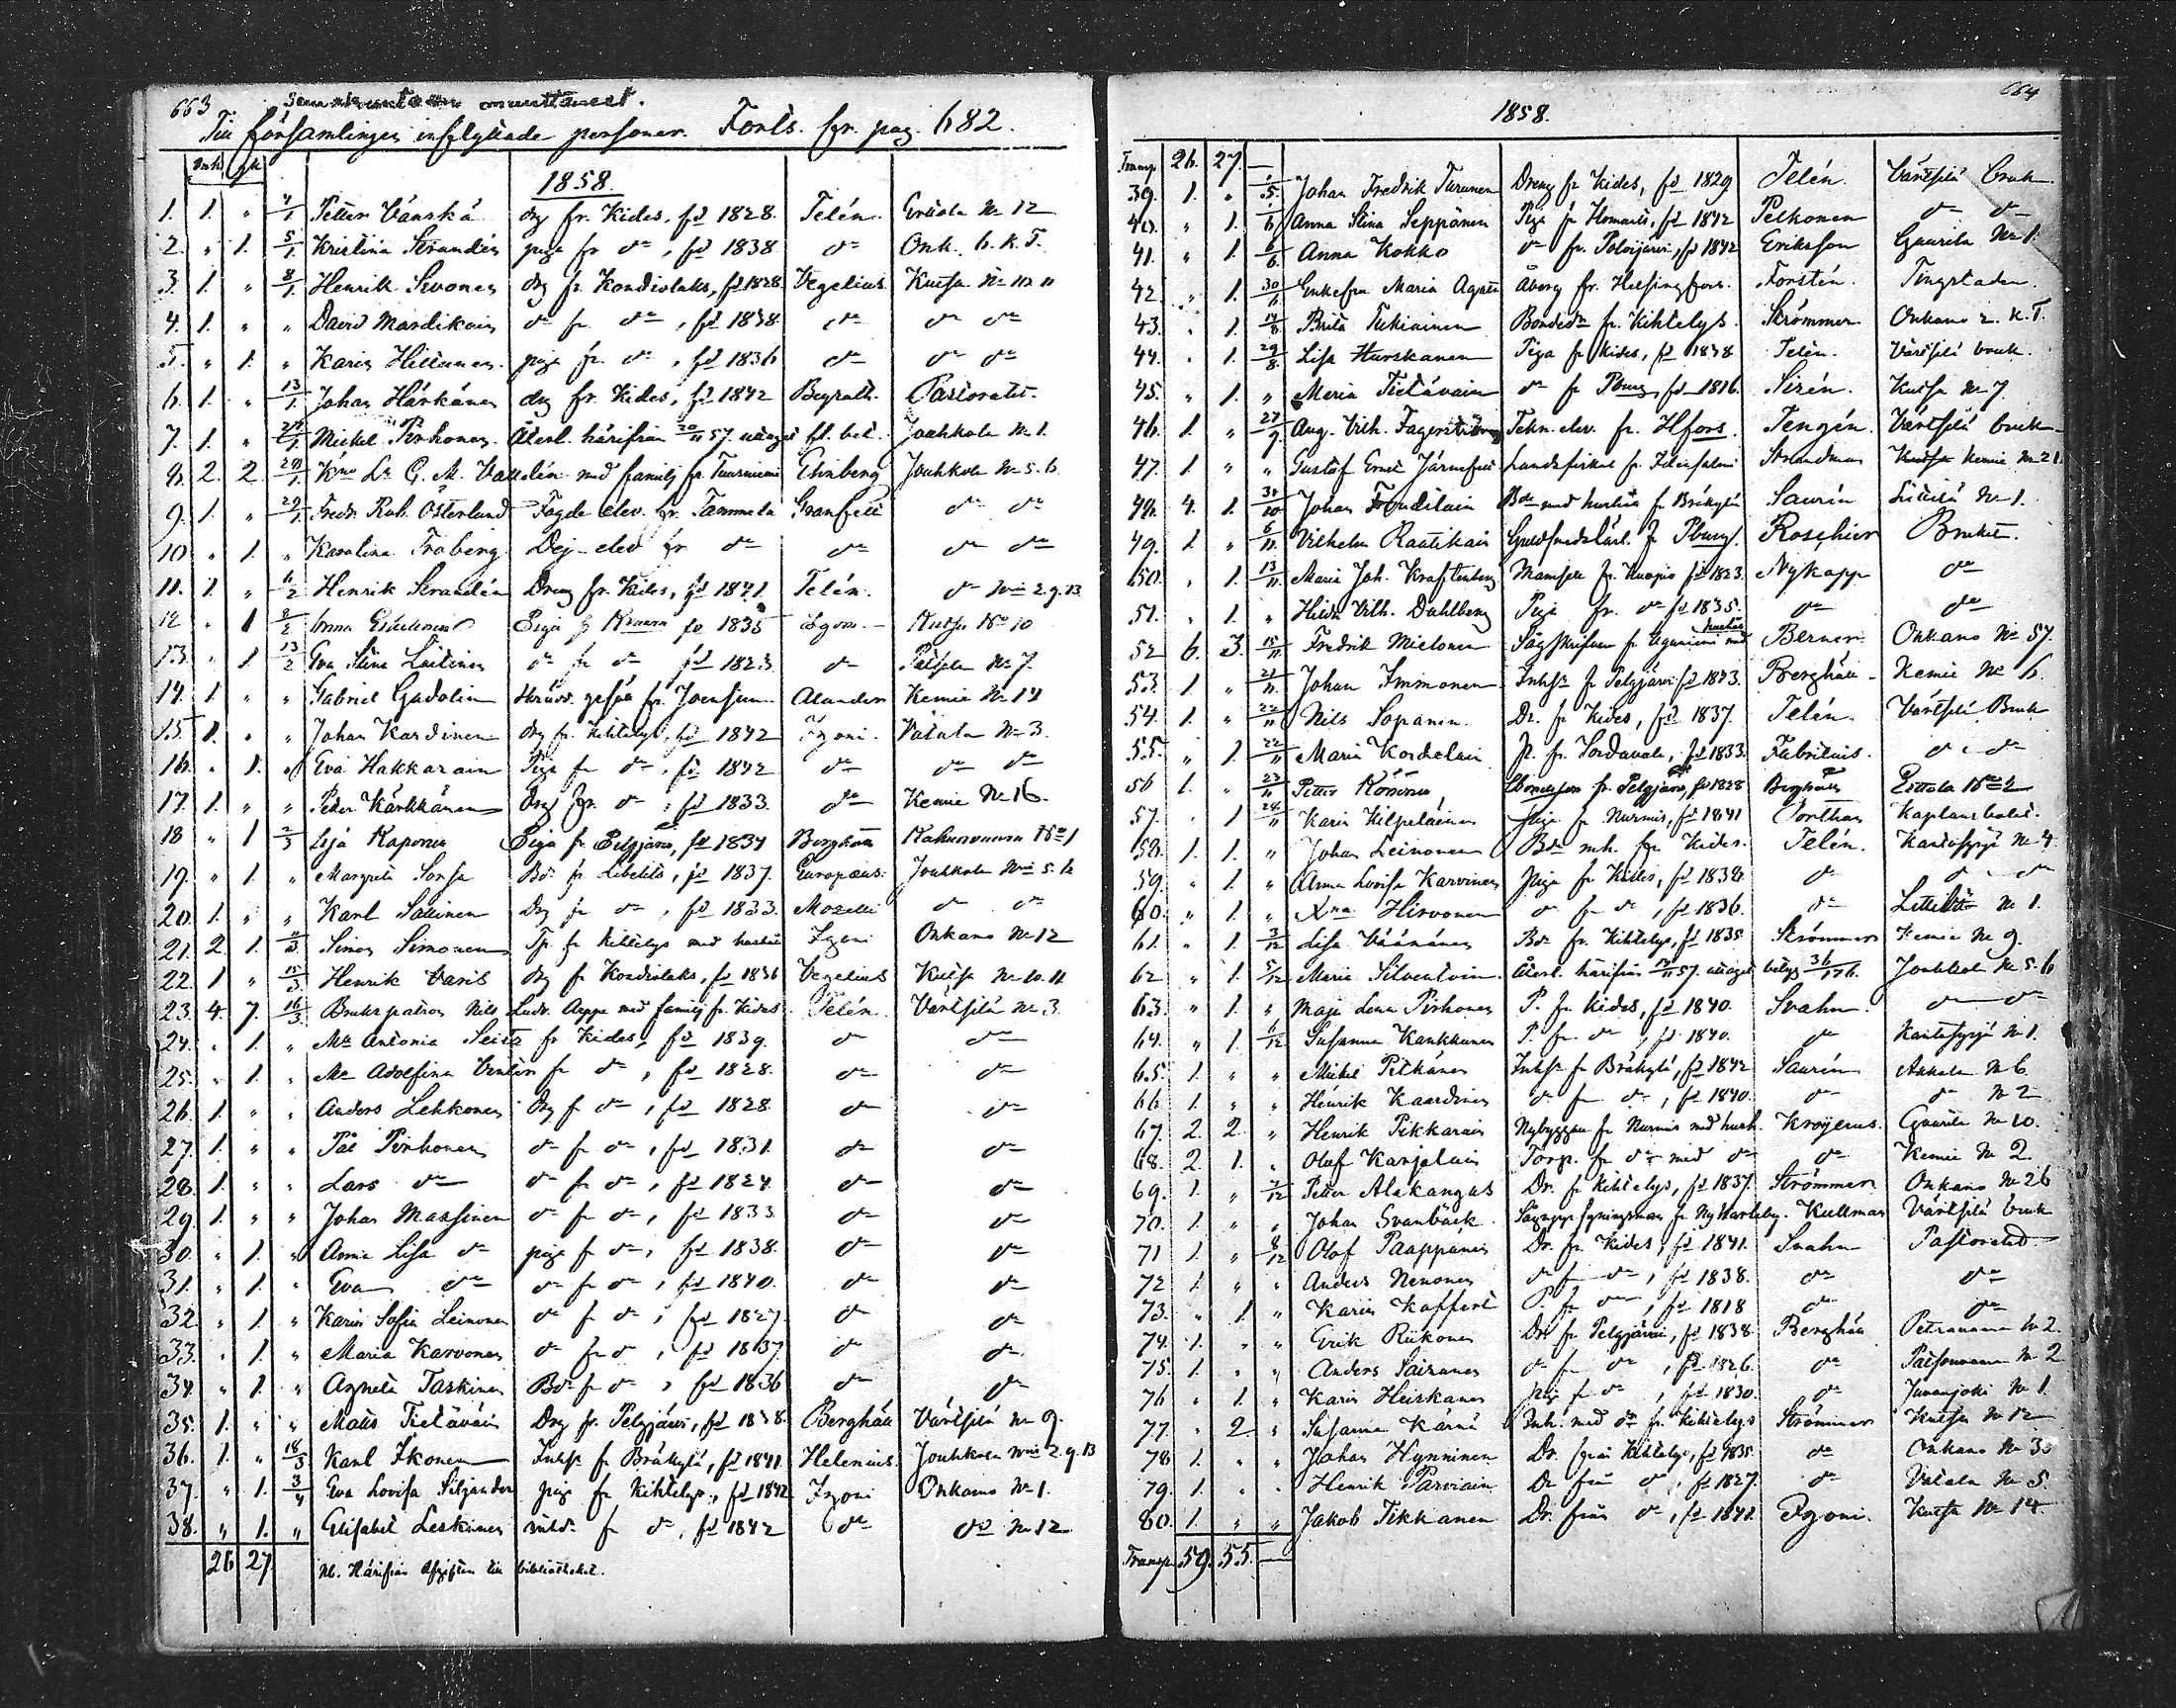 663 Seurakuntaan muuttaneet.
Till församlingen inflyttade personer. Forts. fr. pag. 682.
Mnk. Qk.
1858.
1. 1. " 4/1 Petter Vänskä drg fr. Kides, fd 1828. Telén Nr 12
2. " 1. 5/1 Kristina Strandén piga fr do, fd 1838 do Onk. b. k. T.
3. 1. " 8/1 Henrik Sivonen drg fr. Kondiolaks, fd 1828 Vegelius Kutsu Nr 10 11
4. 1. " " David Mardikain do fr. do, fd 1838. do do do
5. " 1. " Karin Hiltunen piga fr. do, fd 1836 do do do
6. 1. " 13/1 Johan Härkänen drg fr. Kides, fd 1842 Bograth. Pastoratet
7. 1. " Mickel Pirhonen. Återl. härifrån 20/11 57. uttaget fl. bet. Jouhkola Nr 1.
8. 2. 2. 29/1 G. M. med familj fr. Tuusniemi Ehnberg Jouhkola Nr 5. 6.
9. 1. " 29/1 Fredr. Rob. Österlund elev. fr. Tammela Granfelt do do
10 " 1. " Karolina Froberg Dej-elev fr do do do do
11. 1. " 6/2 Henrik Strandén Dreng fr. Kides, fd 1841. Telén. do Nris 2.9.13
12 " 1 8/2 Anna Piga fr fd 1835 Nr 10
13. " 1 13/2 Eva Stina Laitinen do fr do fd 1823. do Nr 7.
14. 1 " " Gabriel Gadolin fr. Joensuu. Alander Kemie Nr 14
15. 1. " " Johan Kardinen drg fr. Kihtelys, fd 1842 Fzoni. Vatala Nr 3.
16. " 1. " Eva Hakkarain Piga fr do, fd 1842 do do do
17. 1. " " Peter Kärkkänen Drg fr. do, fd 1833. do Kemie Nr 16.
18 " 1 2/3 Kaponen Piga fr. Pelgjärvi, fd 1834 Berghäll Kakunvaara No 1
19. " 1. " Margreta Sorsa Bd. fr. Libelits, fd 1837. Europæus. Jouhkola Nris 5. 6
20. 1. " " Karl Sallinen Drg fr do, fd 1833. Mozelli do do
21. 2. 1. 11/3 Simon Simonen Tp. fr Kihtelys med hustru Fzoni Onkamo Nr 12
22. 1 " 15/3 Henrik Varis drg fr Kondiolaks, fd 1836 Vegelius Kutsu Nr 10. 11
23. 4. 7. 16/3 Brukspatron Nils Ludv. Arppe med familj fr. Kides Telén Värtsilä Nr 3.
24. " 1. " Mll Antonia Seitz fr Kides, fd 1839. do do
25. " 1. " Mll Adolfina fr do, fd 1828. do do
26. 1. " " Anders Lehkonen drg fr do, fd 1828. do do
27. 1. " " Pål Pirhonen do fr do, fd 1831. do do
28. 1. " " Lars do do fr do, fd 1824 do do
29. 1. " " Johan Massinen do fr do, fd 1833 do do
30. " 1. " Anna Lisa do piga fr do, fd 1838. do do
31. " 1. " Eva do do fr do, fd 1840. do do
32. " 1. " Karin Sofia Leinonen do fr do, fd 1827. do do
33. " 1. " Maria Karvonen do fr do, fd 1837. do do
34. " 1. " Agneta Taskinen Bdr fr do, fd 1836 do do
35. 1. " " Matts Tietäväin Drg fr. Pelgjärvi, fd 1838. Berghäll Värtsilä Nr 9.
36. 1. " 18/3 Karl Ikonen Inhs. fr Bräkylä, fd 1841. Helenius. Jouhkola Nris 2.9.13
37. " 1. 3/4 Eva Lovisa Siljander piga fr Kihtelys, fd 1842 Fzoni Onkamo Nr 1.
38. " 1. " Elisabet Leskinen fr do, fd 1842 do do Nr 12
26 27 NB. Härifrån afgiften till bibliotheket.
664
1858.
Transp. 26. 27. —
39. 1. " 1/5 Johan Fredrik Turunen Dreng fr Kides, fd 1829 Telén. Värtsilä bruk.
40. " 1. 1/6 Anna Stina Seppänen Piga fr Ilomants, fd 1842 Pelkonen do do
41. " 1. 6/6 Anna Kokko do fr. Polvijärvi, fd 1842 Eriksson Gaurila Nr 1.
42. " 1. 30/6 Enkefru Maria Agata Åberg fr. Helsingfors. Forstén. Tingstaden.
43. " 1. 14/8 Brita Tukiainen Bondedr fr. Kihtelys. Strömmer Onkamo r. k. T.
44. " 1. 29/8 Lisa Hurskanen Piga fr Kides, fd 1838 Telén. Värtsilä bruk.
45. " 1. " Maria Tietäväin do fr Pburg, fd 1816. Sirén. Kutsu Nr 7.
46. 1. " 27/9 Aug. Vilh. Fagerström Tekn. elev. fr. Hfors. Tengén. Värtsilä bruk
47. 1. " " Gustaf Ernst Järnefelt Landsfiskal fr. Idensalmi Strandman Kemie Nr 21
48. 4. 1. 30/10 Johan Bde med hustru fr Bräkylä Saurén Nr 1.
49. 1. " 6/11 Vilhelm Rautikain Guldsmedslärl. fr Pburg. Roschier Bruket.
50. " 1. 13/11 Maria Joh. Kraftenberg Mamsell fr. Kuopio fd 1823. Nykopp do
51. " 1. " Hilda Vilh. Dahlberg Piga fr. do fd 1835. do do
52 6. 3. 15/11 Fredrik Mielonen Sågskrifvare fr. med hustru Berner. Onkamo Nr 57.
53. 1. " 21/11 Johan Immonen Inhs. fr Pelgjärvi fd 1843. Berghäll Kemie Nr 6.
54. 1. " 22/11 Nils Sopanen. Dr. fr Kides, fd 1837. Telén. Värtsilä Bruk
55. " 1. 22/11 Maria Korhelain P. fr. Sordavala, fd 1833. Fabritius. do do
56 1. " 23/11 Petter fr. Pelgjärvi, fd 1828 Berghäll
57. " 1 24/11 Karin Kilpeläinen piga fr Nurmis, fd 1841 Porthan Kaplansbolet.
58. 1. 1. " Johan Leinonen Bde mh. fr. Kides. Telén. Nr 4
59. " 1. " Anna Lovisa Karvinen piga fr Kides, fd 1838 do do do
60. " 1. " Xna Hirvonen do fr do, fd 1836. do Nr 1.
61. " 1. 3/12 Lisa Väänänen Bdr fr. Kihtelys, fd 1835 Strömmer Kemie Nr 9.
62 " 1. 5/12 Maria Silventoin Återl. härifrån 57. uttaget betyg Jouhkola Nr 5. 6
63. " 1. " Maja Lena Pirhonen P. fr. Kides, fd 1840. Svahn do do
64. " 1. Susanna Kankkunen P. fr. do, fd 1840. do Nr 1.
65. 1. " " Mickel Pitkänen Inhs. fr Bräkylä, fd 1842 Saurén Nr 6.
66 1. " " Henrik Kaardinen do fr do, fd 1840. do do Nr 2
67. 2. 2. " Henrik Pikkarain Nybyggare fr Nurmis med hust. Kroijerus. Gaurila Nr 10.
68. 2. 1. " Olof Karjalain Torp. fr do med do do Kemie Nr 2
69. 1. " 7/12 Petter Alakangas Dr. fr Kihtelys, fd 1837. Strömmer Onkamo Nr 26
70. 1. " " Johan Svanbäck fr Nykarleby. Kullman Värtsilä bruk
71 1. " 8/12 Olof Paappanen Dr. fr. Kides, fd 1841. Svahn Pastoratet
72 1. " " Anders Nenonen do fr do, fd 1838. do do
73. " 1 " Karin Kaffert P. fr do, fd 1818 do do
74. 1. " " Erik Riikonen Dr fr Pelgjärvi, fd 1838 Berghäll Petravaara Nr 2.
75. 1. " " Anders Sairanen do fr do, fd 1826. do Patsonvaara Nr 2
76 " 1. " Karin Heiskanen piga fr do, fd 1830. do Juvanjoki Nr 1.
77. " 2 " Susanna Kärnä Enk. med dr fr. Kihtelys Strömmer Kutsu Nr 12
78 1. " " Johan Hynninen Dr. från Kihtelys, fd 1835. do Onkamo Nr 30
79. 1. " " Henrik Parviain Dr från do, fd 1827. do Vatala Nr 5.
80. 1. " " Jakob Tikkanen Dr. från do, fd 1841. Fzoni. Kutsu Nr 14
Transp. 59. 55. —